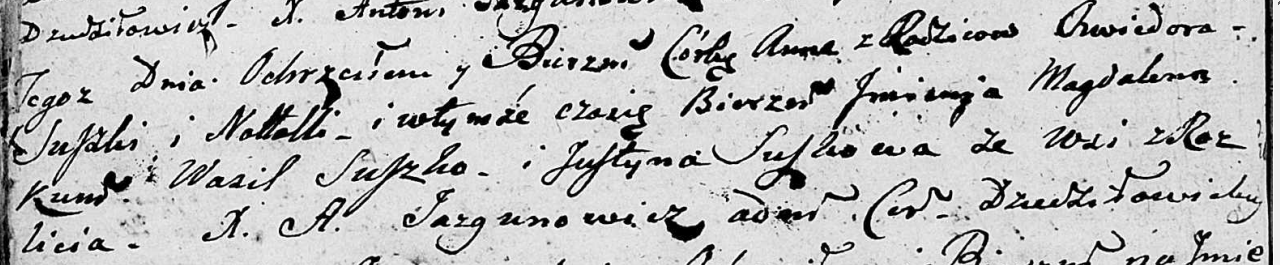 Dzedziłowicz. X. Antoni Jazgunowicz
Tegoż Dnia Ochrzciłem y Bierzm Córkę Anna z Rodzicow Chwiedora
Suszki i Nattalli i w tymże czasię Bierzm Imieniją Magdalena
Kumᵒ Wasil Suszko i Justyna Suszkowa ze wsi z Roz
licia. X. A. Jazgunowicz admᵒ Cer. Dzedziłowickiy
Imie